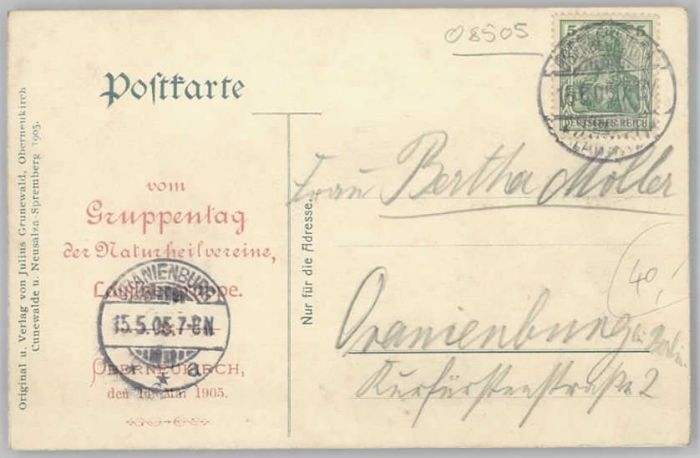 08505
5 5
DEUTSCHES REICH
Postkarte
vom
Gruppentag
der Naturheilvereine,
OBERNEUKIRCH,
den Mai 1905.
ORANIENBURG
15.5.05.7-8N
* a
Original u. Verlag von Julius Grunewald, Oberneukirch
Cunewalde u. Neusalza-Spremberg 1905.
Nur für die Adresse.
Frau Bertha Möller
Oranienburg bei Berlin
Kurfürstenstraße 2
40,